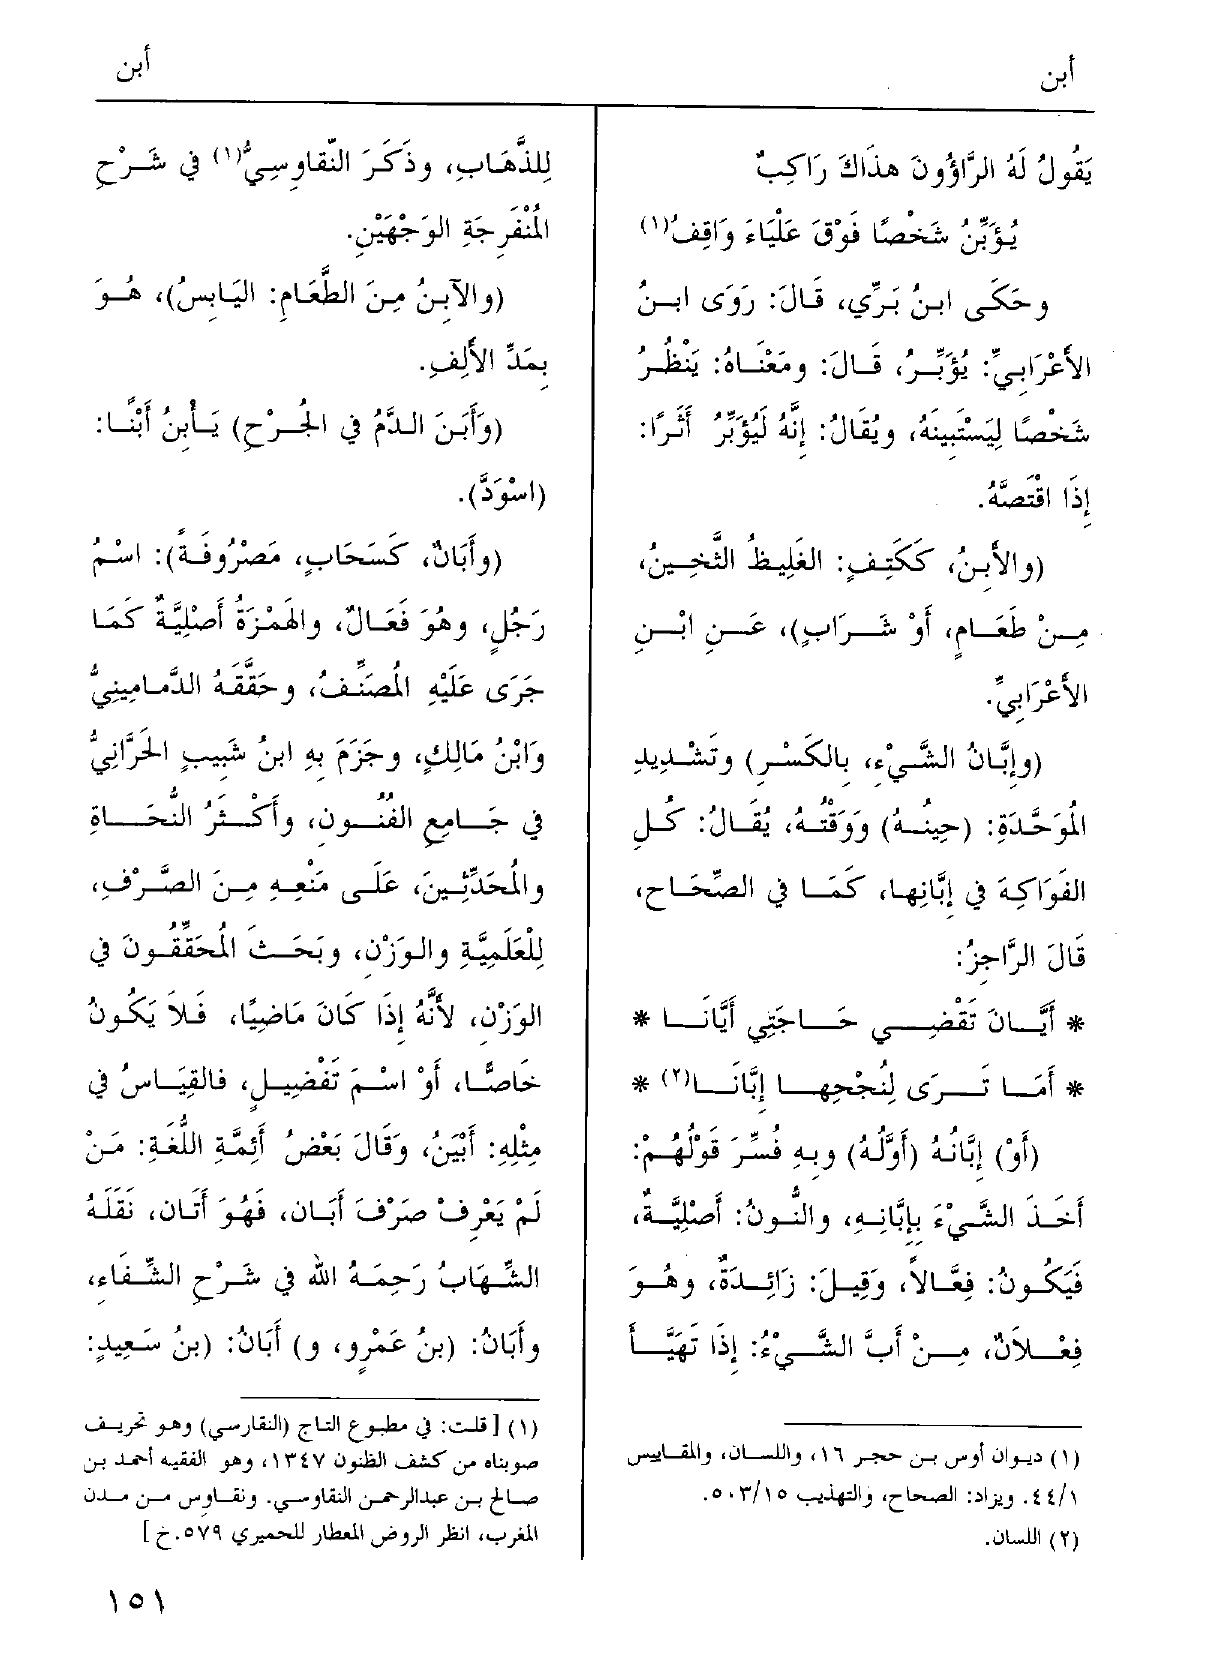 أبن
أبن
يَقُولُ لَهُ الرَّاؤُونَ هذَاكَ رَاكِبٌ
يُؤَبِّنُ شَخْصًا فَوْقَ عَلْيَاءَ وَاقِفُ(١)
وحَكَى ابنُ بَرِّي، قَالَ: رَوَى ابنُ
الأَعْرَابِيِّ: يُؤَبِّرُ، قَالَ: ومَعْنَاهُ: يَنْظُرُ
شَخْصًا لِيَسْتَبِينَهُ، ويُقَالُ: إِنَّهُ لَيُؤَبِّرُ أَثَرًا:
إِذَا اقْتَصَّهُ.
(والأَبِنُ، كَكَتِفٍ: الغَلِيظُ الثَّخِينُ،
مِنْ طَعَامٍ، أَوْ شَرَابٍ)، عَنِ ابْنِ
الأَعْرَابِيِّ.
(وإِبَّانُ الشَّيْءِ، بِالكَسْرِ) وتَشْدِيدِ
المُوَحَّدَةِ: (حِينُهُ) وَوَقْتُهُ، يُقَالُ: كُلِ
الفَوَاكِهَ فِي إِبَّانِهَا، كَمَا فِي الصِّحَاحِ،
قَالَ الرَّاجِزُ:
* أَيَّانَ تَقْضِي حَاجَتِي أَيَّانَا *
* أَمَا تَرَى لِنُجْحِهَا إِبَّانَا(٢) *
(أَوْ) إِبَّانُهُ (أَوَّلُهُ) وبِهِ فُسِّرَ قَوْلُهُمْ:
أَخَذَ الشَّيْءَ بِإِبَّانِهِ، والنُّونُ: أَصْلِيَّةٌ،
فَيَكُونُ: فِعَّالاً، وَقِيلَ: زَائِدَةٌ، وهُوَ
فِعْلاَنٌ، مِنْ أَبَّ الشَّيْءُ: إِذَا تَهَيَّأَ
(١) ديوان أوس بن حجر ١٦، واللسان، والمقاييس
٤٤/١. ويزاد: الصحاح، والتهذيب ٥٠٣/١٥.
(٢) اللسان.
لِلذَّهَابِ، وذَكَرَ النِّقَاوِسِيُّ(١) فِي شَرْحِ
المُنْفَرِجَةِ الوَجْهَيْنِ.
(والآبِنُ مِنَ الطَّعَامِ: اليَابِسُ)، هُوَ
بِمَدِّ الأَلِفِ.
(وَأَبَنَ الدَّمُ فِي الجُرْحِ) يَأْبِنُ أَبْنًا:
(اسْوَدَّ).
(وأَبَانٌ، كَسَحَابٍ، مَصْرُوفَةً): اسْمُ
رَجُلٍ، وهُوَ فَعَالٌ، والهَمْزَةُ أَصْلِيَّةٌ كَمَا
جَرَى عَلَيْهِ المُصَنِّفُ، وحَقَّقَهُ الدَّمَامِينِيُّ
وَابْنُ مَالِكٍ، وجَزَمَ بِهِ ابنُ شَبِيبٍ الحَرَّانِيُّ
فِي جَامِعِ الفُنُونِ، وأَكْثَرُ النُّحَاةِ
والمُحَدِّثِينَ، عَلَى مَنْعِهِ مِنَ الصَّرْفِ،
لِلْعَلَمِيَّةِ والوَزْنِ، وبَحَثَ المُحَقِّقُونَ فِي
الوَزْنِ، لأَنَّهُ إِذَا كَانَ مَاضِيًا، فَلاَ يَكُونُ
خَاصًّا، أَوْ اسْمَ تَفْضِيلٍ، فَالقِيَاسُ فِي
مِثْلِهِ: أَبْيَنُ، وَقَالَ بَعْضُ أَئِمَّةِ اللُّغَةِ: مَنْ
لَمْ يَعْرِفْ صَرْفَ أَبَان، فَهُوَ أَتَان، نَقَلَهُ
الشِّهَابُ رَحِمَهُ الله فِي شَرْحِ الشِّفَاءِ،
وأَبَانُ: (بنُ عَمْرٍو، و) أَبَانُ: (بنُ سَعِيدٍ:
(١) [قلت: في مطبوع التاج (النقارسي) وهو تحريف
صوبناه من كشف الظنون ١٣٤٧، وهو الفقيه أحمد بن
صالح بن عبدالرحمن النقاوسي. ونقاوس من مدن
المغرب، انظر الروض المعطار للحميري ٥٧٩.خ]
١٥١